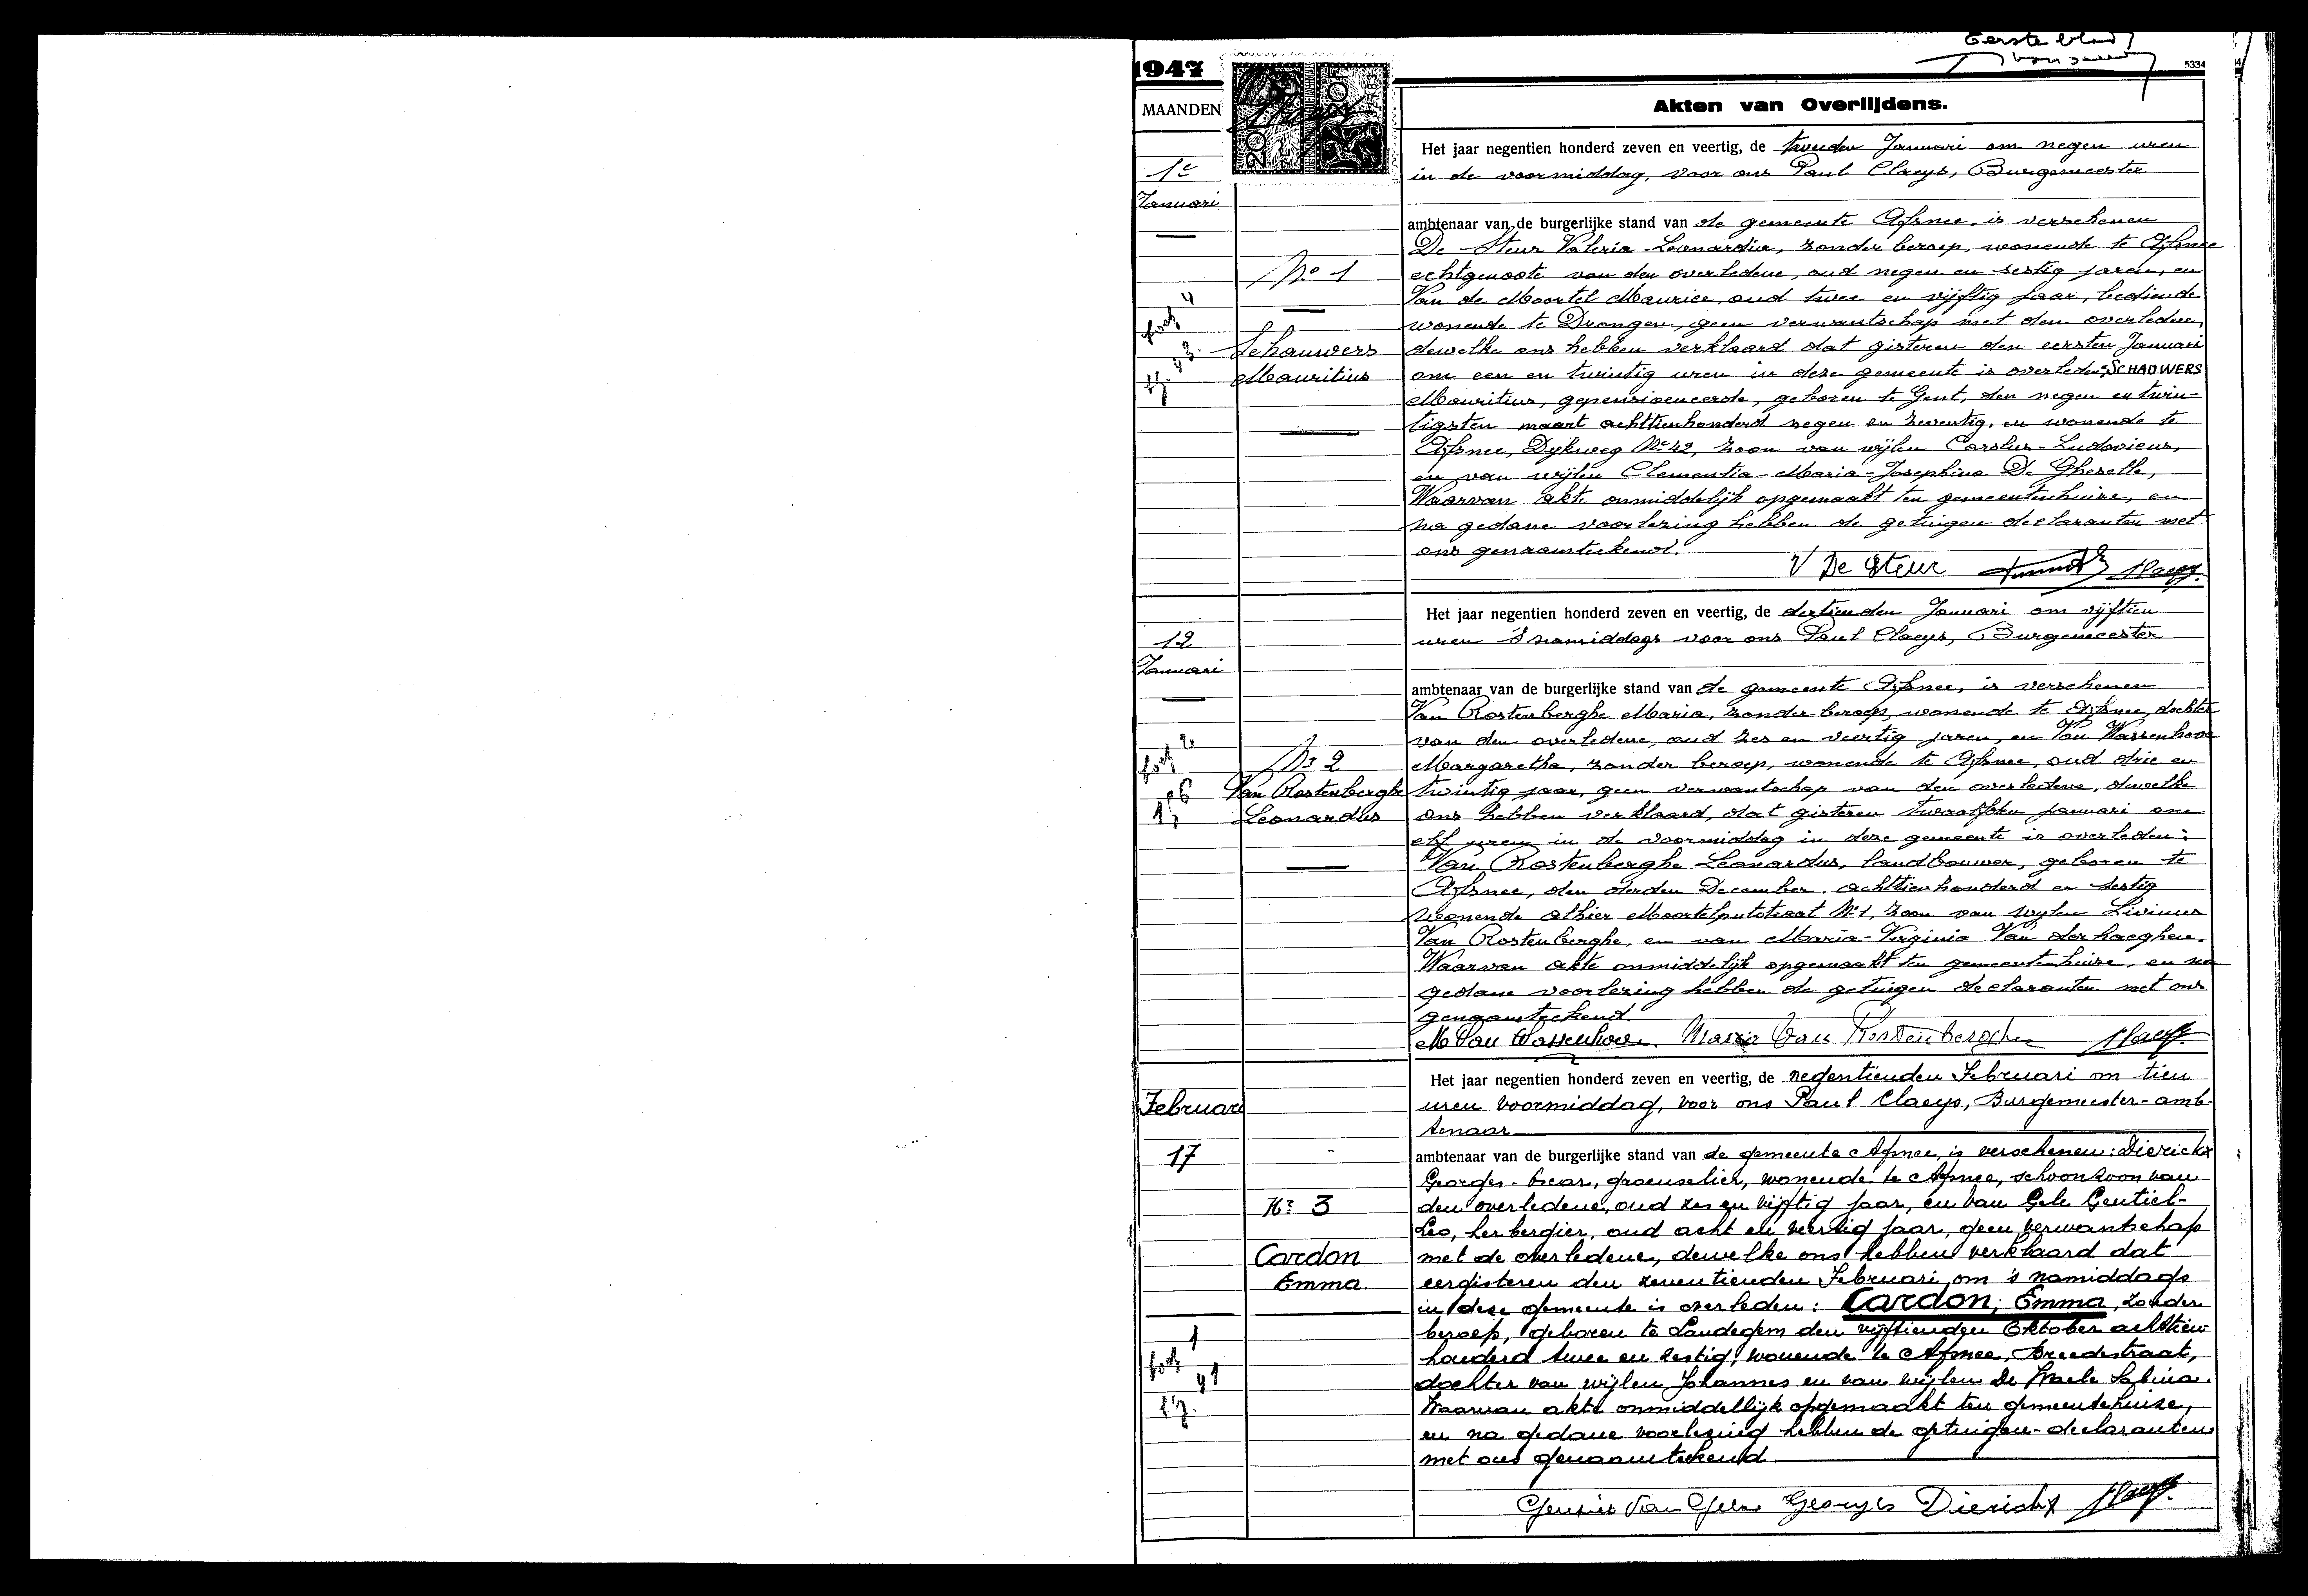 Eerste blad
1947
5334
MAANDEN
Akten van Overlijdens.
1e
Januari
No 1
Schauwers
Mauritius
Het jaar negentien honderd zeven en veertig, de tweeden Januari om negen uren
in de voormiddag, voor ons Paul Claeys, Burgemeester
ambtenaar van de burgerlijke stand van de gemeente Afsnee, is verschenen
De Steur Valeria-Leonardia, zonder beroep, wonende te Afsnee
echtgenoote van den overledene, oud negen en sestig jaren, en
Van de Moortel Maurice, oud twee en vijftig jaar, bediende
wonende te Drongen, geen verwantschap met den overledene,
dewelke ons hebben verklaard dat gisteren den eersten Januari
om een en twintig uren in deze gemeente is overleden: SCHAUWERS
Mauritius, gepensioeneerde, geboren te Gent, den negen en twin-
tigsten maart achttienhonderd negen en zeventig, en wonende te
Afsnee, Dykweg No 42, zoon van wijlen Carolus-Ludovicus,
en van wijlen Clementia-Maria-Josephina De Gheselle,
Waarvan akte onmiddelijk opgemaakt ten gemeentenhuize, en
na gedane voorlezing hebben de getuigen declaranten met
ons genaamteekend.
V De Steur Claeys
12
Januari
Nr 2
Van Rostenberghe
Leonardus
Het jaar negentien honderd zeven en veertig, de dertienden Januari om vijftien
uren 's namiddags voor ons Paul Claeys, Burgemeester
ambtenaar van de burgerlijke stand van de gemeente Afsnee, is verschenen
Van Rostenberghe Maria, zonder beroep, wonende te Afsnee, dochter
van den overledene, oud zes en veertig jaren, en Van Wassenhove
Margaretha, zonder beroep, wonende te Afsnee, oud drie en
twintig jaar, geen verwantschap van den overledene, dewelke
ons hebben verklaard, dat gisteren twaalfden januari om
elf uren in de voormiddag in deze gemeente is overleden:
Van Rostenberghe Leonardus, landbouwer, geboren te
Afsnee, den derden December achttienhonderd en sestig
wonende alhier Moortelputstraat Nr 1, zoon van wijlen Livinus
Van Rostenberghe, en van Maria-Virginia Van der haeghen.
Waarvan akte onmiddelijk opgemaakt ten gemeentenhuize, en na
gedane voorlezing hebben de getuigen declaranten met ons
genaamteekend.
M Van Wassenhove. Maria Van Rostenberghe Claeys
Februari
17
Nr 3
Cardon
Emma
Het jaar negentien honderd zeven en veertig, de negentienden Februari om tien
uren voormiddag, voor ons Paul Claeys, Burgemeester-amb-
tenaar
ambtenaar van de burgerlijke stand van de gemeente Afsnee, is verschenen: Dierickx
Georges-Oscar, groenselier, wonende te Afsnee, schoonzoon van
den overledene, oud zes en vijftig jaar, en Van Gele Gentiel-
Leo, herbergier, oud acht en veertig jaar, geen verwantschap
met de overledene, dewelke ons hebben verklaard dat
eergisteren den zeventienden Februari, om 's namiddags
in deze gemeente is overleden: Cardon, Emma, zonder
beroep, geboren te Landegem den vijftienden Oktober achttien-
honderd twee en zestig, wonende te Afsnee, Breedestraat,
dochter van wijlen Johannes en van wijlen De Waele Sabina.
Waarvan akte onmiddellijk opgemaakt ten gemeentehuize,
en na gedane voorlezing hebben de getuigen-declaranten
met ons genaamteekend.
Gentiel Van Gele Georges Dierickx Claeys